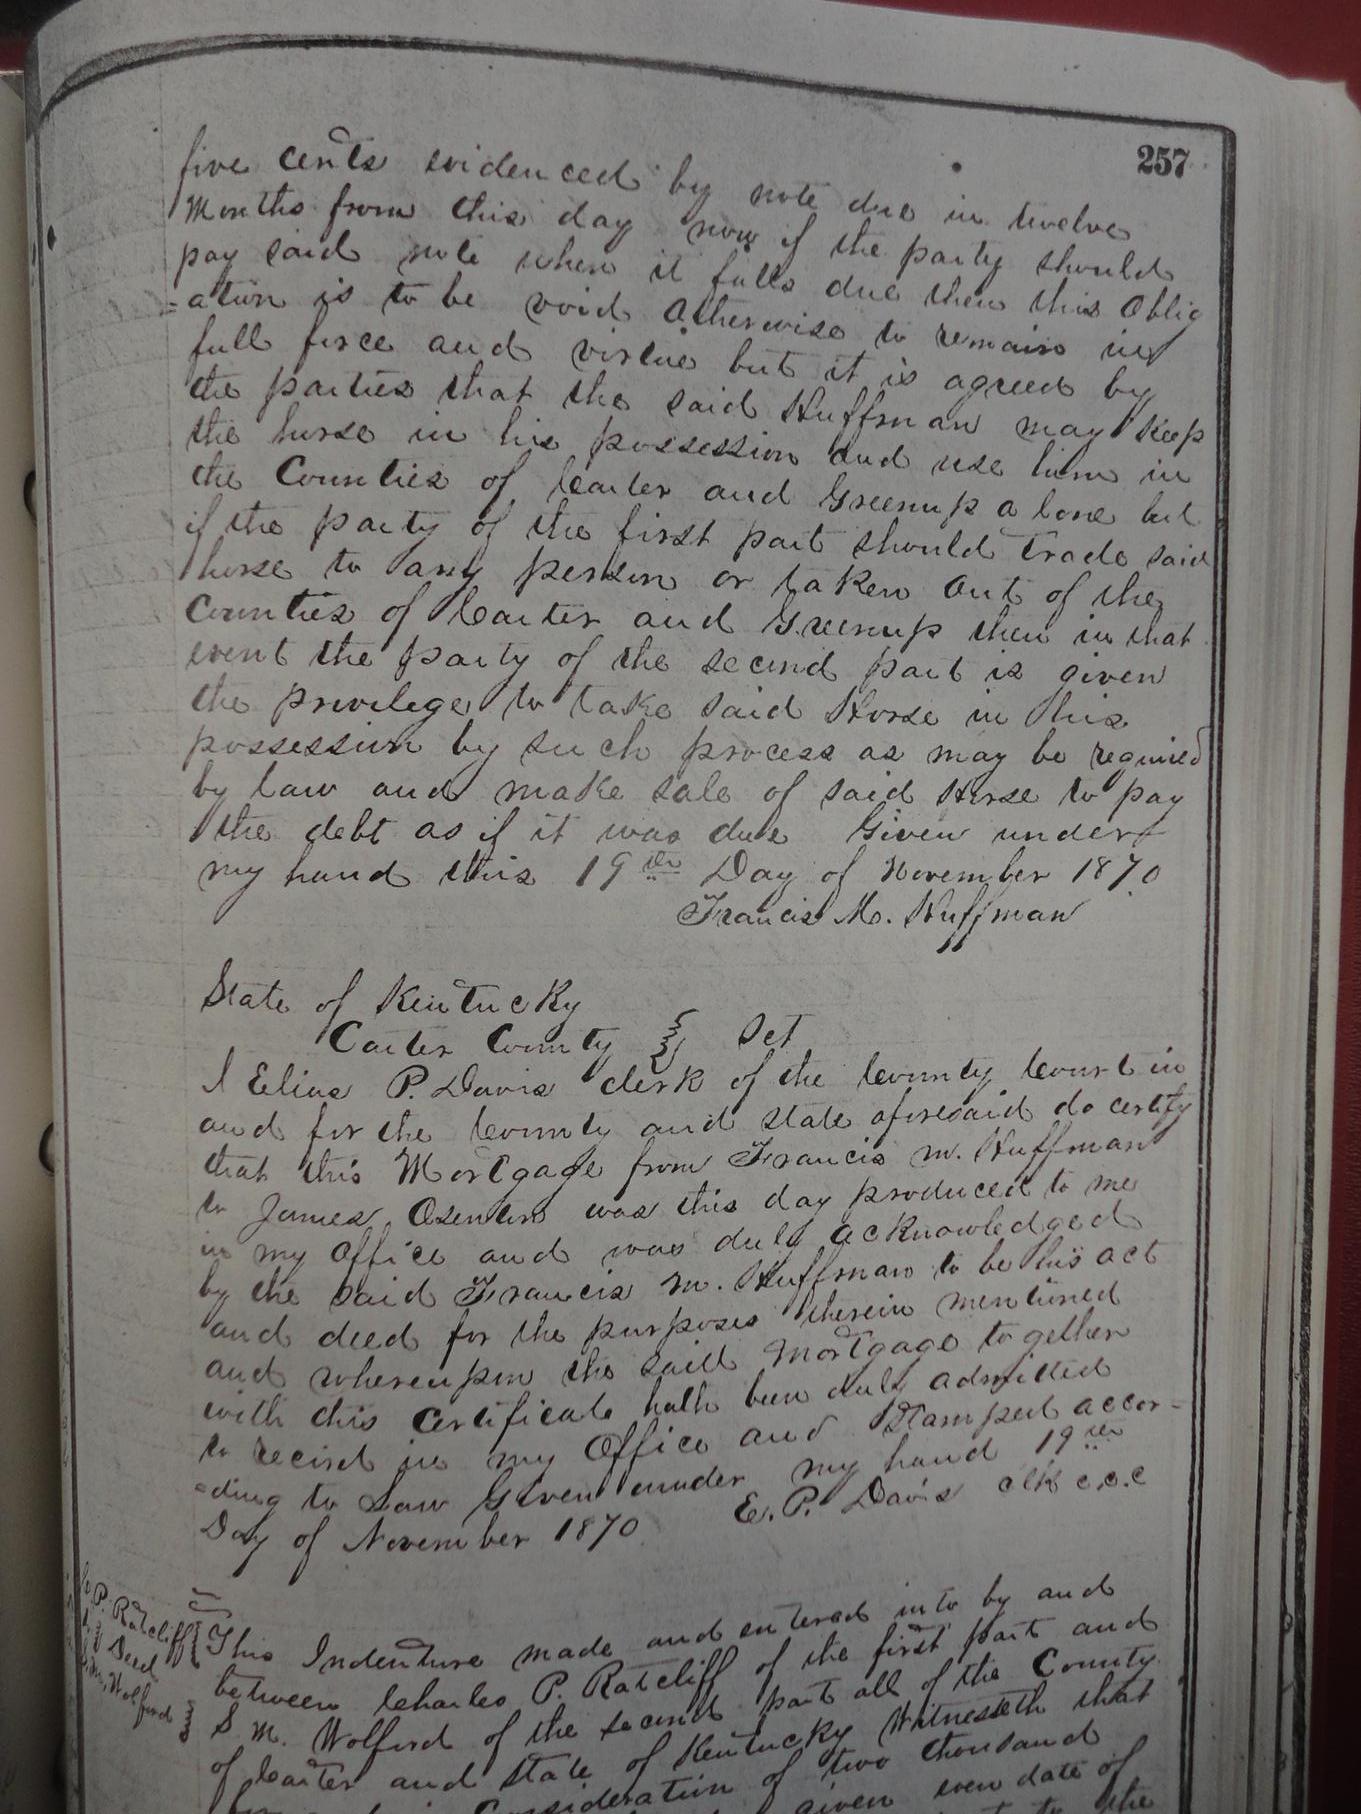 257
five cents evidenced by note due in twelve
Months from this day now if the party should
pay said note when it falls due then this Oblig
=ation is to be void Otherwise to remain in
full force and virtue but it is agreed by
the parties that the said Huffman may Keep
the horse in his possession and use him in
the Counties of Carter and Greenup alone but
if the party of the first part should Trade said
horse to any person or taken out of the
Counties of Carter and Greenup then in that
event the party of the second part is given
the privilege to take said Horse in his
possession by such process as may be required
by law and make sale of said Horse to pay
the debt as if it was due Given under
my hand this 19th Day of November 1870
Francis M. Huffman
State of Kentucky
Carter County } Sct
I Elias P. Davis clerk of the County Court in
and for the County and State aforesaid do certify
that this Mortgage from Francis M. Huffman
to James Osenton was this day produced to me
in my Office and was duly acknowledged
by the said Francis M. Huffman to be his act
and deed for the purposes therein mentioned
and whereupon the said Mortgage together
with this Certificate hath been duly admitted
to record in my Office and Stamped accor=
=ding to Law Given under my hand 19th
Day of November 1870 E. P. Davis clk c.c.c
P. Ratcliff
Deed
Wolford
This Indenture made and entered into by and
between Charles P. Ratcliff of the first part and
S. M. Wolford of the second part all of the County
of Carter and State of Kentucky Witnesseth that
Consideration of two thousand
given even date of
to the